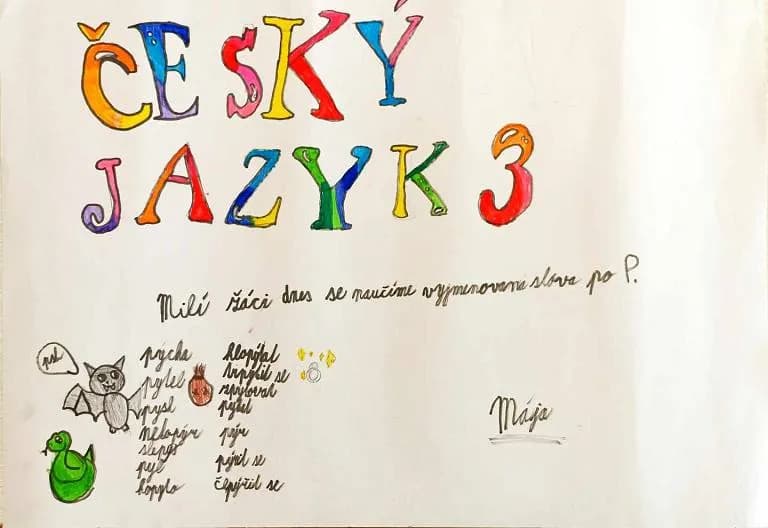 ČESKÝ
JAZYK 3
Milí žáci dnes se naučíme vyjmenovaná slova po P.
pst
pýcha
pytel
pysk
netopýr
slepýš
pyl
kopyto
klopýtat
třpytil se
zpytovat
pykat
pýr
pýřil se
čepýřil se
Mája